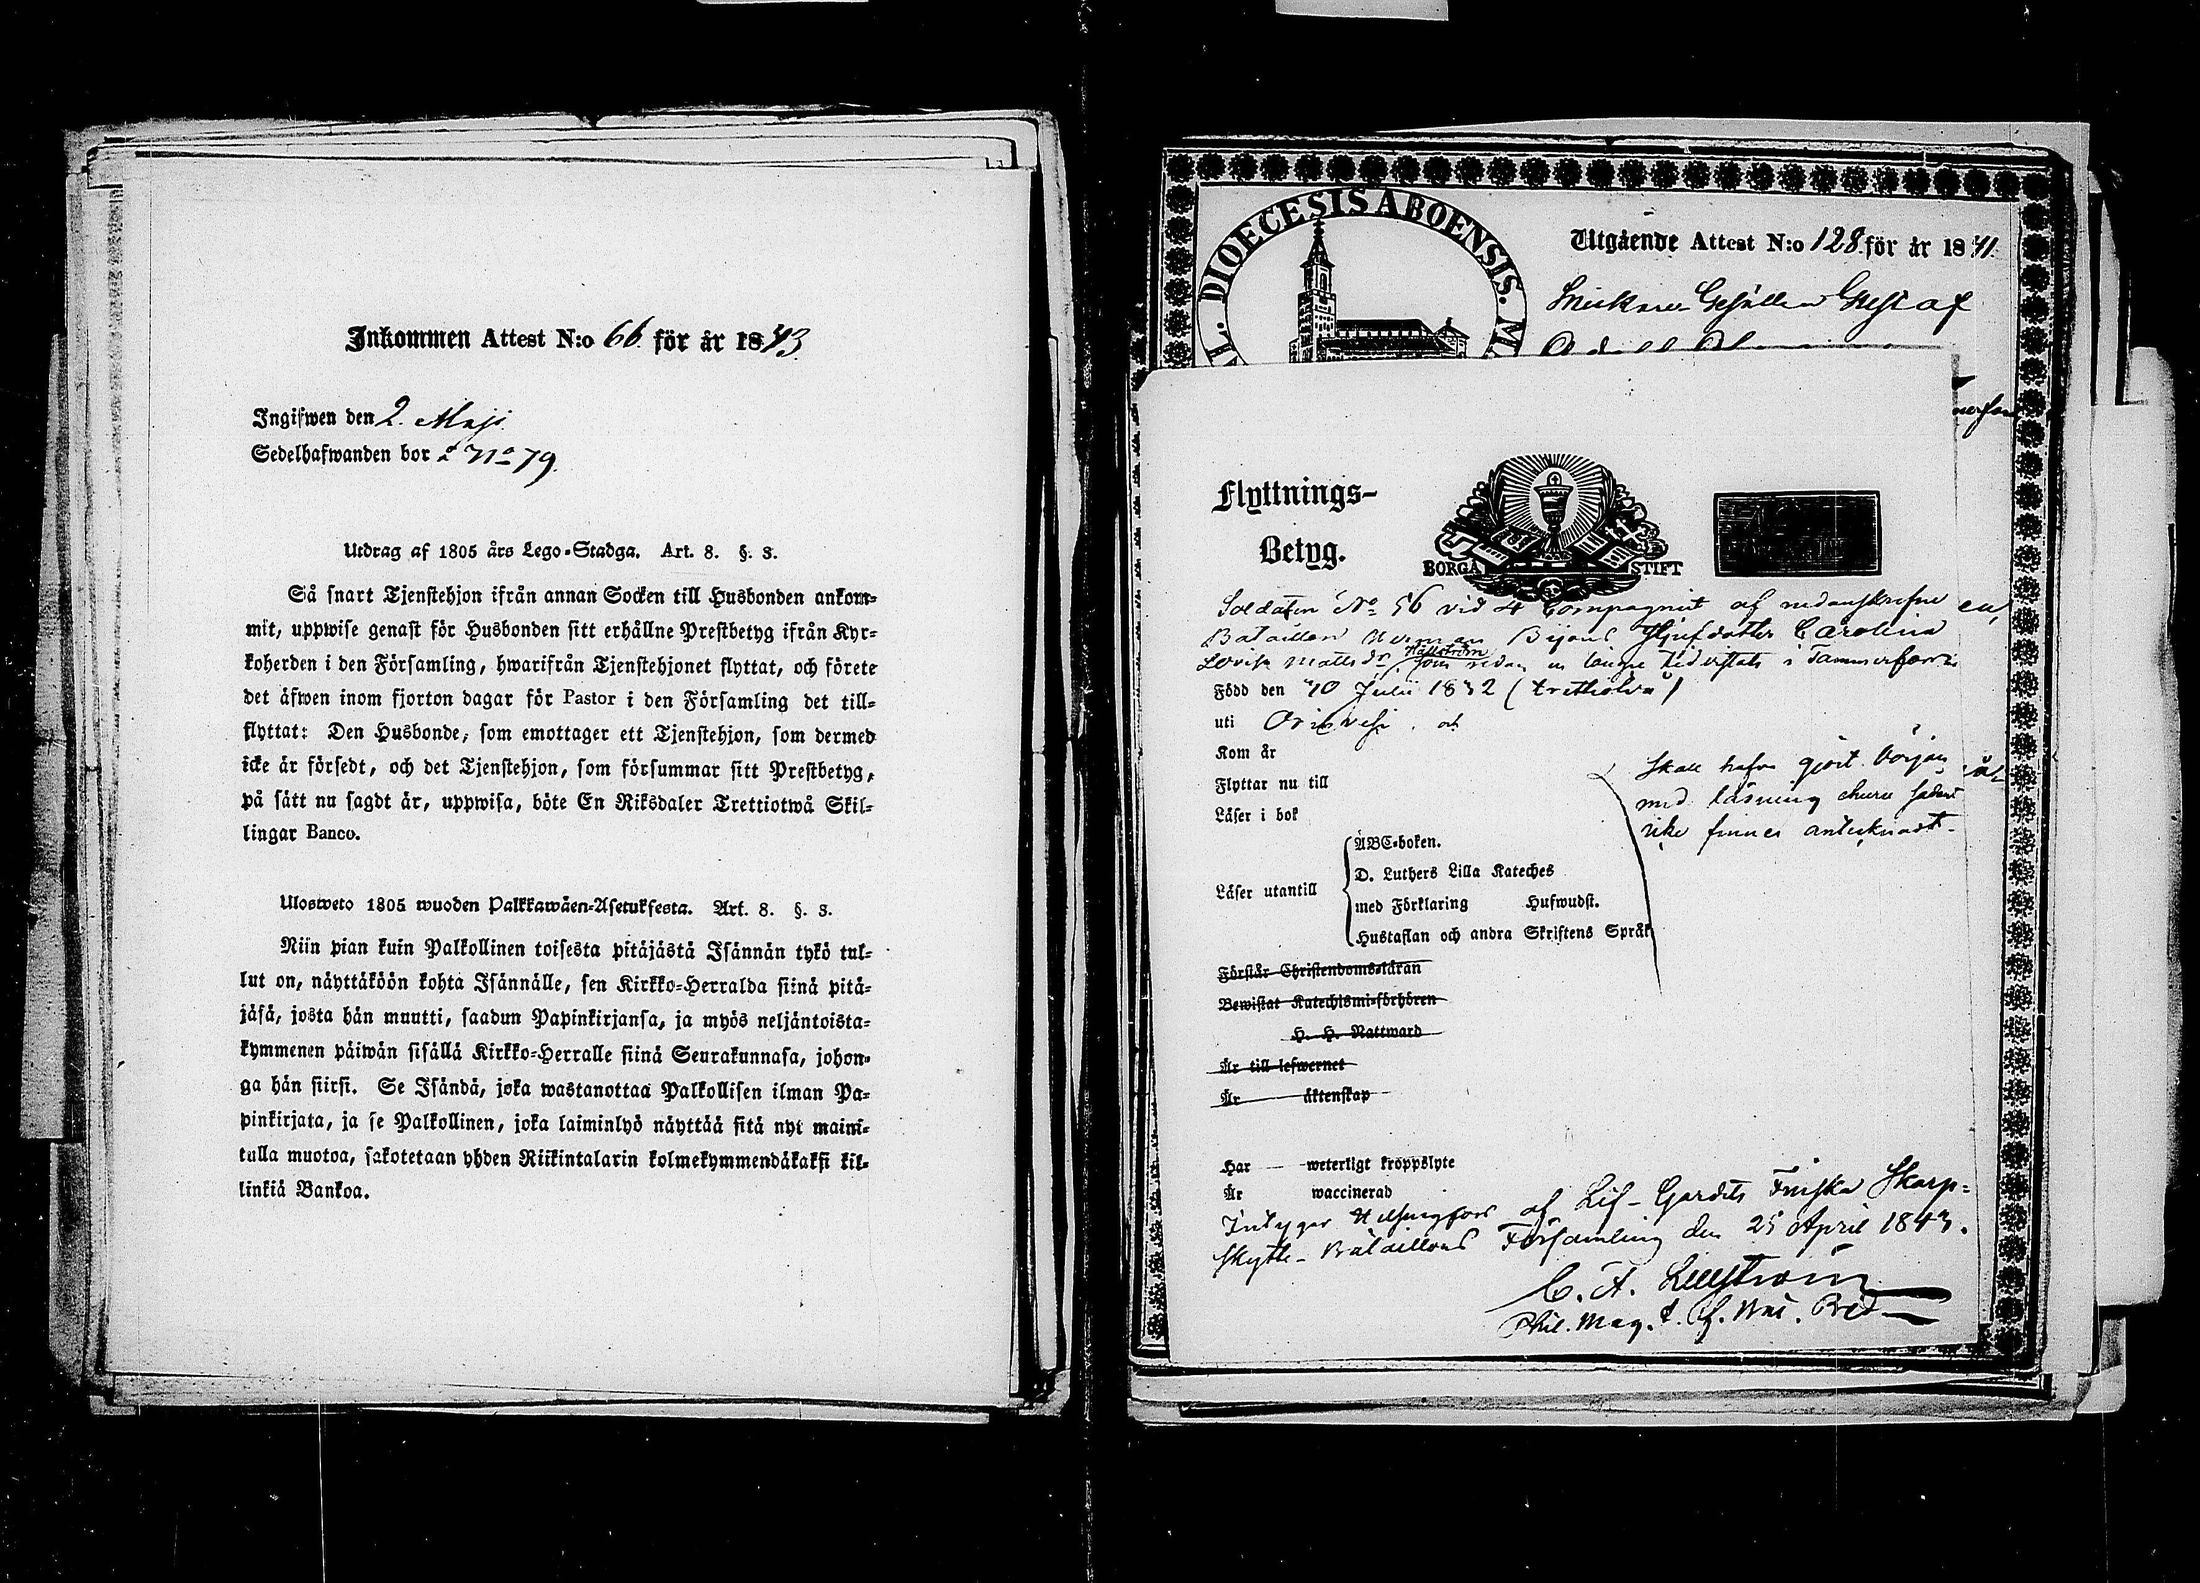 Inkommen Attest N:o 66 för år 1843.
Ingifwen den 2. Maji
Sedelhafwanden bor å No 79.
Utdrag af 1805 års Lego-Stadga. Art. 8. §. 3.
Så snart Tjenstehjon ifrån annan Socken till Husbonden ankom-
mit, uppwise genast för Husbonden sitt erhållne Prestbetyg ifrån Kyr-
koherden i den Församling, hwarifrån Tjenstehjonet flyttat, och förete
det äfwen inom fjorton dagar för Pastor i den Församling det till-
flyttat: Den Husbonde, som emottager ett Tjenstehjon, som dermed
icke är försedt, och det Tjenstehjon, som försummar sitt Prestbetyg,
på sätt nu sagdt är, uppwisa, böte En Riksdaler Trettiotwå Skil-
lingar Banco.
Ulosweto 1805 wuoden Palkkawäen-Asetuksesta. Art. 8. §. 3.
Niin pian kuin Palkollinen toisesta pitäjästä Isännän tykö tul-
lut on, näyttäköön kohta Isännälle, sen Kirkko-Herralda siinä pitä-
jäsä, josta hän muutti, saadun Papinkirjansa, ja myös neljäntoista-
kymmenen päiwän sisällä Kirkko-Herralle siinä Seurakunnasa, johon-
ga hän siirsi. Se Isändä, joka wastanottaa Palkollisen ilman Pa-
pinkirjata, ja se Palkollinen, joka laiminlyö näyttää sitä nyt maini-
tulla muotoa, sakotetaan yhden Riikintalarin kolmekymmendäkaksi kil-
linkiä Bankoa.
DIOECESIS ABOENSIS.
Utgående Attest N:o 128 för år 1841.
Snickare Gesällen Gustaf
Flyttnings-
Betyg.
BORGÅ STIFT
Soldaten No 56 vid 4 Compagniet af nedanskrefne
Bataillon Herman Styfdotter Carolina
Lovisa Mattsdr Hällström som redan en längre tid vistats i Tammerfors
Född den 10 Julii 1832 (trettiotvå)
uti Orivesi
Kom år
Flyttar nu till
Läser i bok
Skall hafva gjort början
med läsning ehuru sådant
icke finnes antecknadt.
Läser utantill
ABC-boken.
D. Luthers Lilla Kateches
med Förklaring Hufwudst.
Hustaflan och andra Skriftens Språk
Förstår Christendoms-läran
Bewistat Katechismi-förhören
H. H. Nattward
Är till lefwernet
Är äktenskap
Har weterligt kroppslyte
Är waccinerad
Intygar Helsingfors af Lif-Gardets Finska Skarp-
skytte-Bataillons Församling den 25 April 1843.
Phil. Mag.